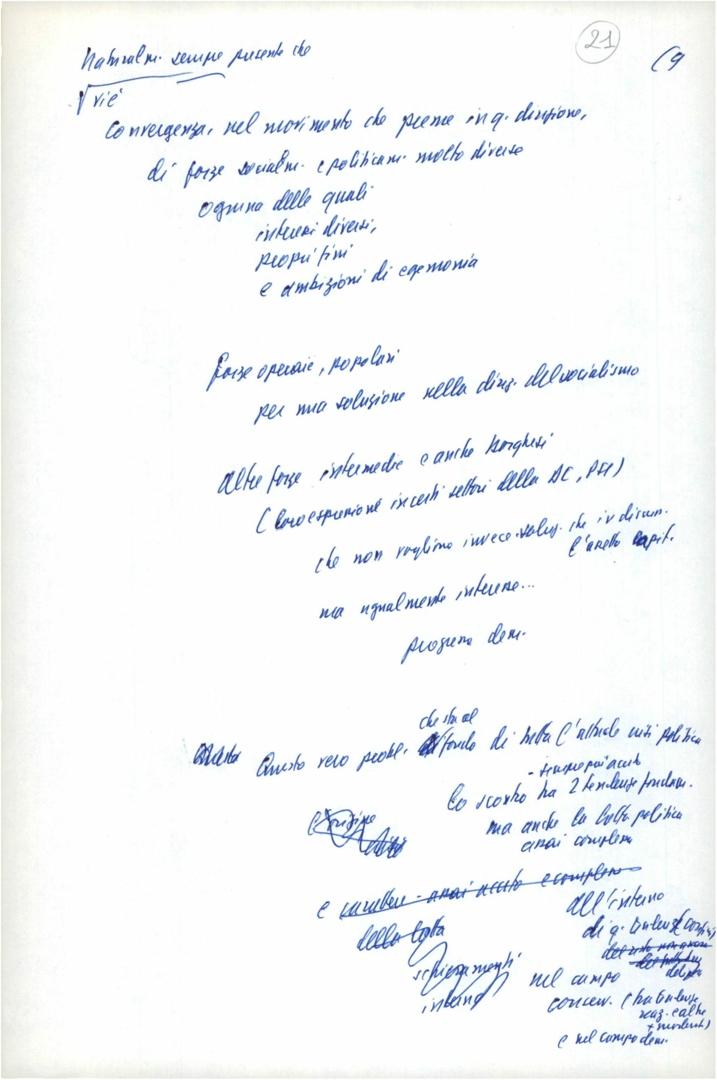 21
(9
Naturalm. sempre presente che
v'è
Convergenza, nel movimento che preme in q. direzione,
di forze socialm. e politicam. molto diverse
ognuna delle quali
interessi diversi,
propri fini
e ambizioni di egemonia
forze operaie, popolari
per una soluzione nella direz. del socialismo
Altre forze intermedie e anche borghesi
(loro espressione in certi settori della DC, PSI)
che non vogliono invece soluz. che
l'assetto capit.
ma ugualmente interesse...
progresso dem.
che sta al
Questo Questo vero probl. fondo di tutta l'attuale crisi politica
- sempre più acuto
lo scontro ha 2 tendenze fondam.
ma anche la lotta politica
assai complessa
Origine
e carattere - assai acuto e complesso
della lotta
all'interno
di q. tendenze
schieramenti
interni
nel campo
conserv. (ha tendenze
reaz. e altre
+ moderate)
e nel campo dem.